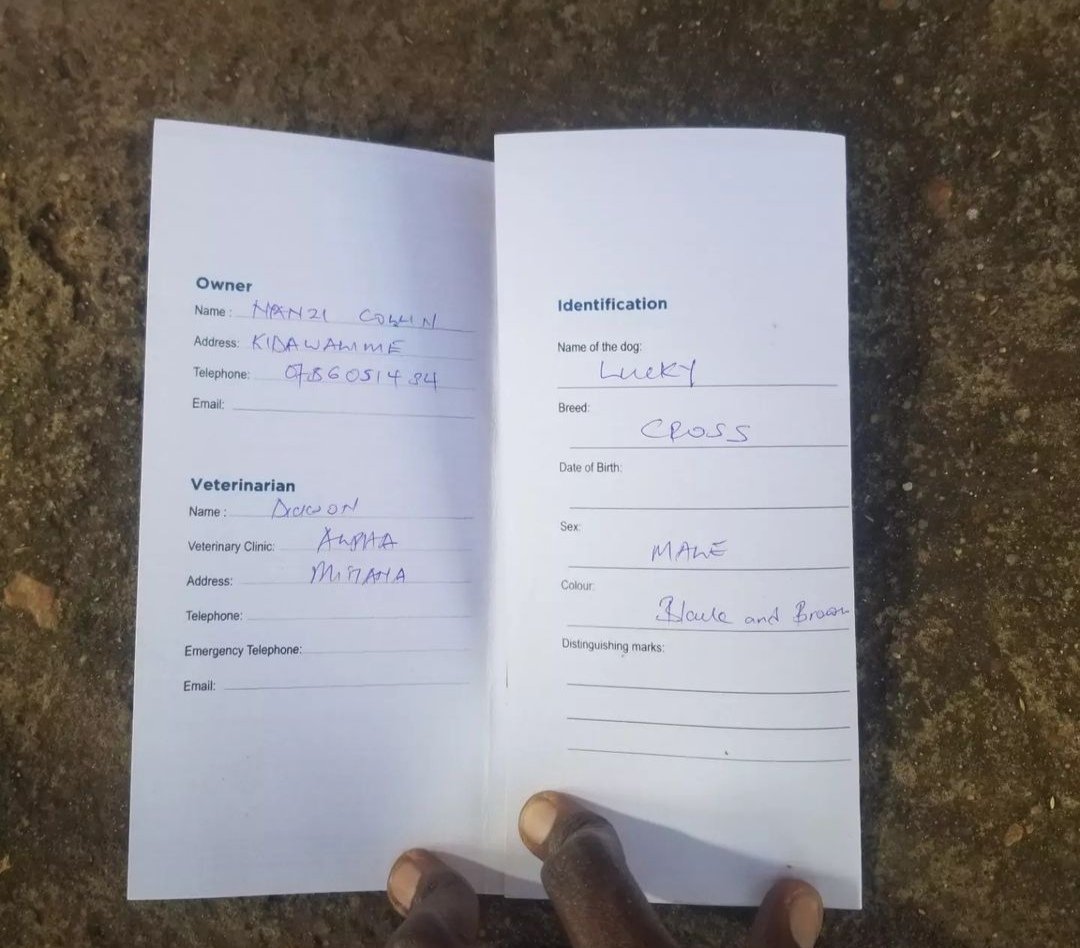 Owner
Name : NANZI COLLIN
Address: KIDAWALIME
Telephone:
Email:
Veterinarian
Name : DICKSON
Veterinary Clinic: ALPHA
Address: MITYANA
Telephone:
Emergency Telephone:
Email:
Identification
Name of the dog:
LUCKY
Breed:
CROSS
Date of Birth:
Sex:
MALE
Colour:
Black and Brown
Distinguishing marks: